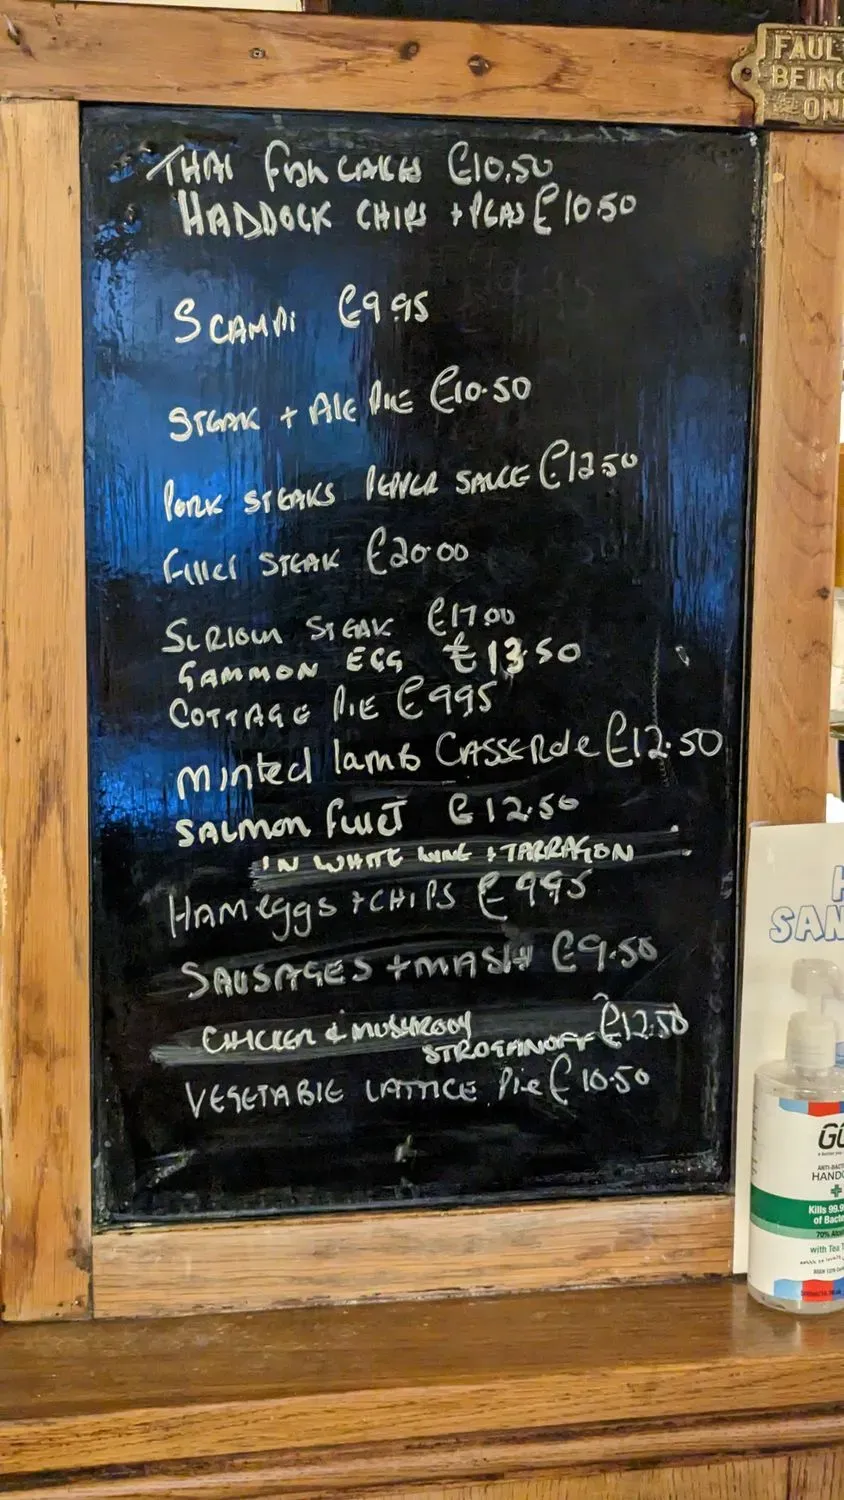 FAUL
BEING
ON
THAI FISH CAKES £10.50
HADDOCK CHIPS + PEAS £10.50
SCAMPI £9.95
STEAK + ALE PIE £10.50
PORK STEAKS PEPPER SAUCE £12.50
FILLET STEAK £20.00
SIRLOIN STEAK £17.00
GAMMON EGG £13.50
COTTAGE PIE £9.95
minted lamb CASSEROLE £12.50
SALMON FILLET £12.50
IN WHITE WINE + TARRAGON
HAM eggs + CHIPS £9.95
SAUSAGES + MASH £9.50
CHICKEN & MUSHROOM £12.50
STROGANOFF
VEGETABLE LATTICE Pie £10.50
H
SAN
GO
ANTI-BACT
HAND
Kills 99.9
of Bacte
70% Alco
with Tea T